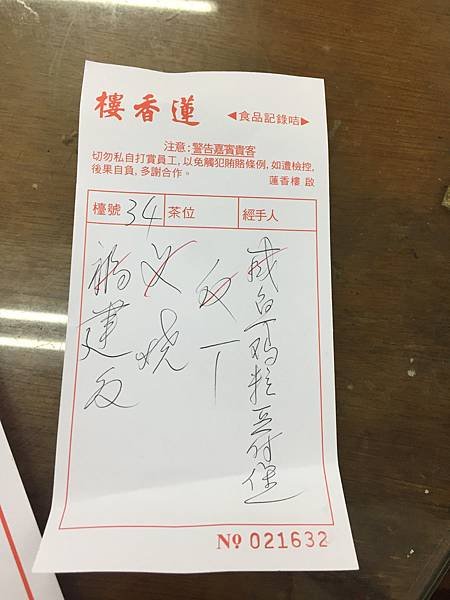 蓮香樓
◀食品記錄咭▶
注意:警告嘉賓貴客
切勿私自打賞員工,以免觸犯賄賂條例,如遭檢控,
後果自負,多謝合作。
蓮香樓 啟
檯號 34 茶位 經手人
咸鱼鸡粒豆付煲
反丁
叉烧
福建反
Nº 021632